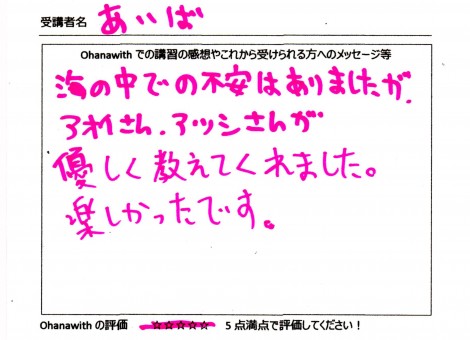 受講者名 あいば
Ohanawith での講習の感想やこれから受けられる方へのメッセージ等
海の中での不安はありましたが、
アオイさん、アッシさんが
優しく教えてくれました。
楽しかったです。
Ohanawith の評価 ☆☆☆☆☆ 5点満点で評価してください！